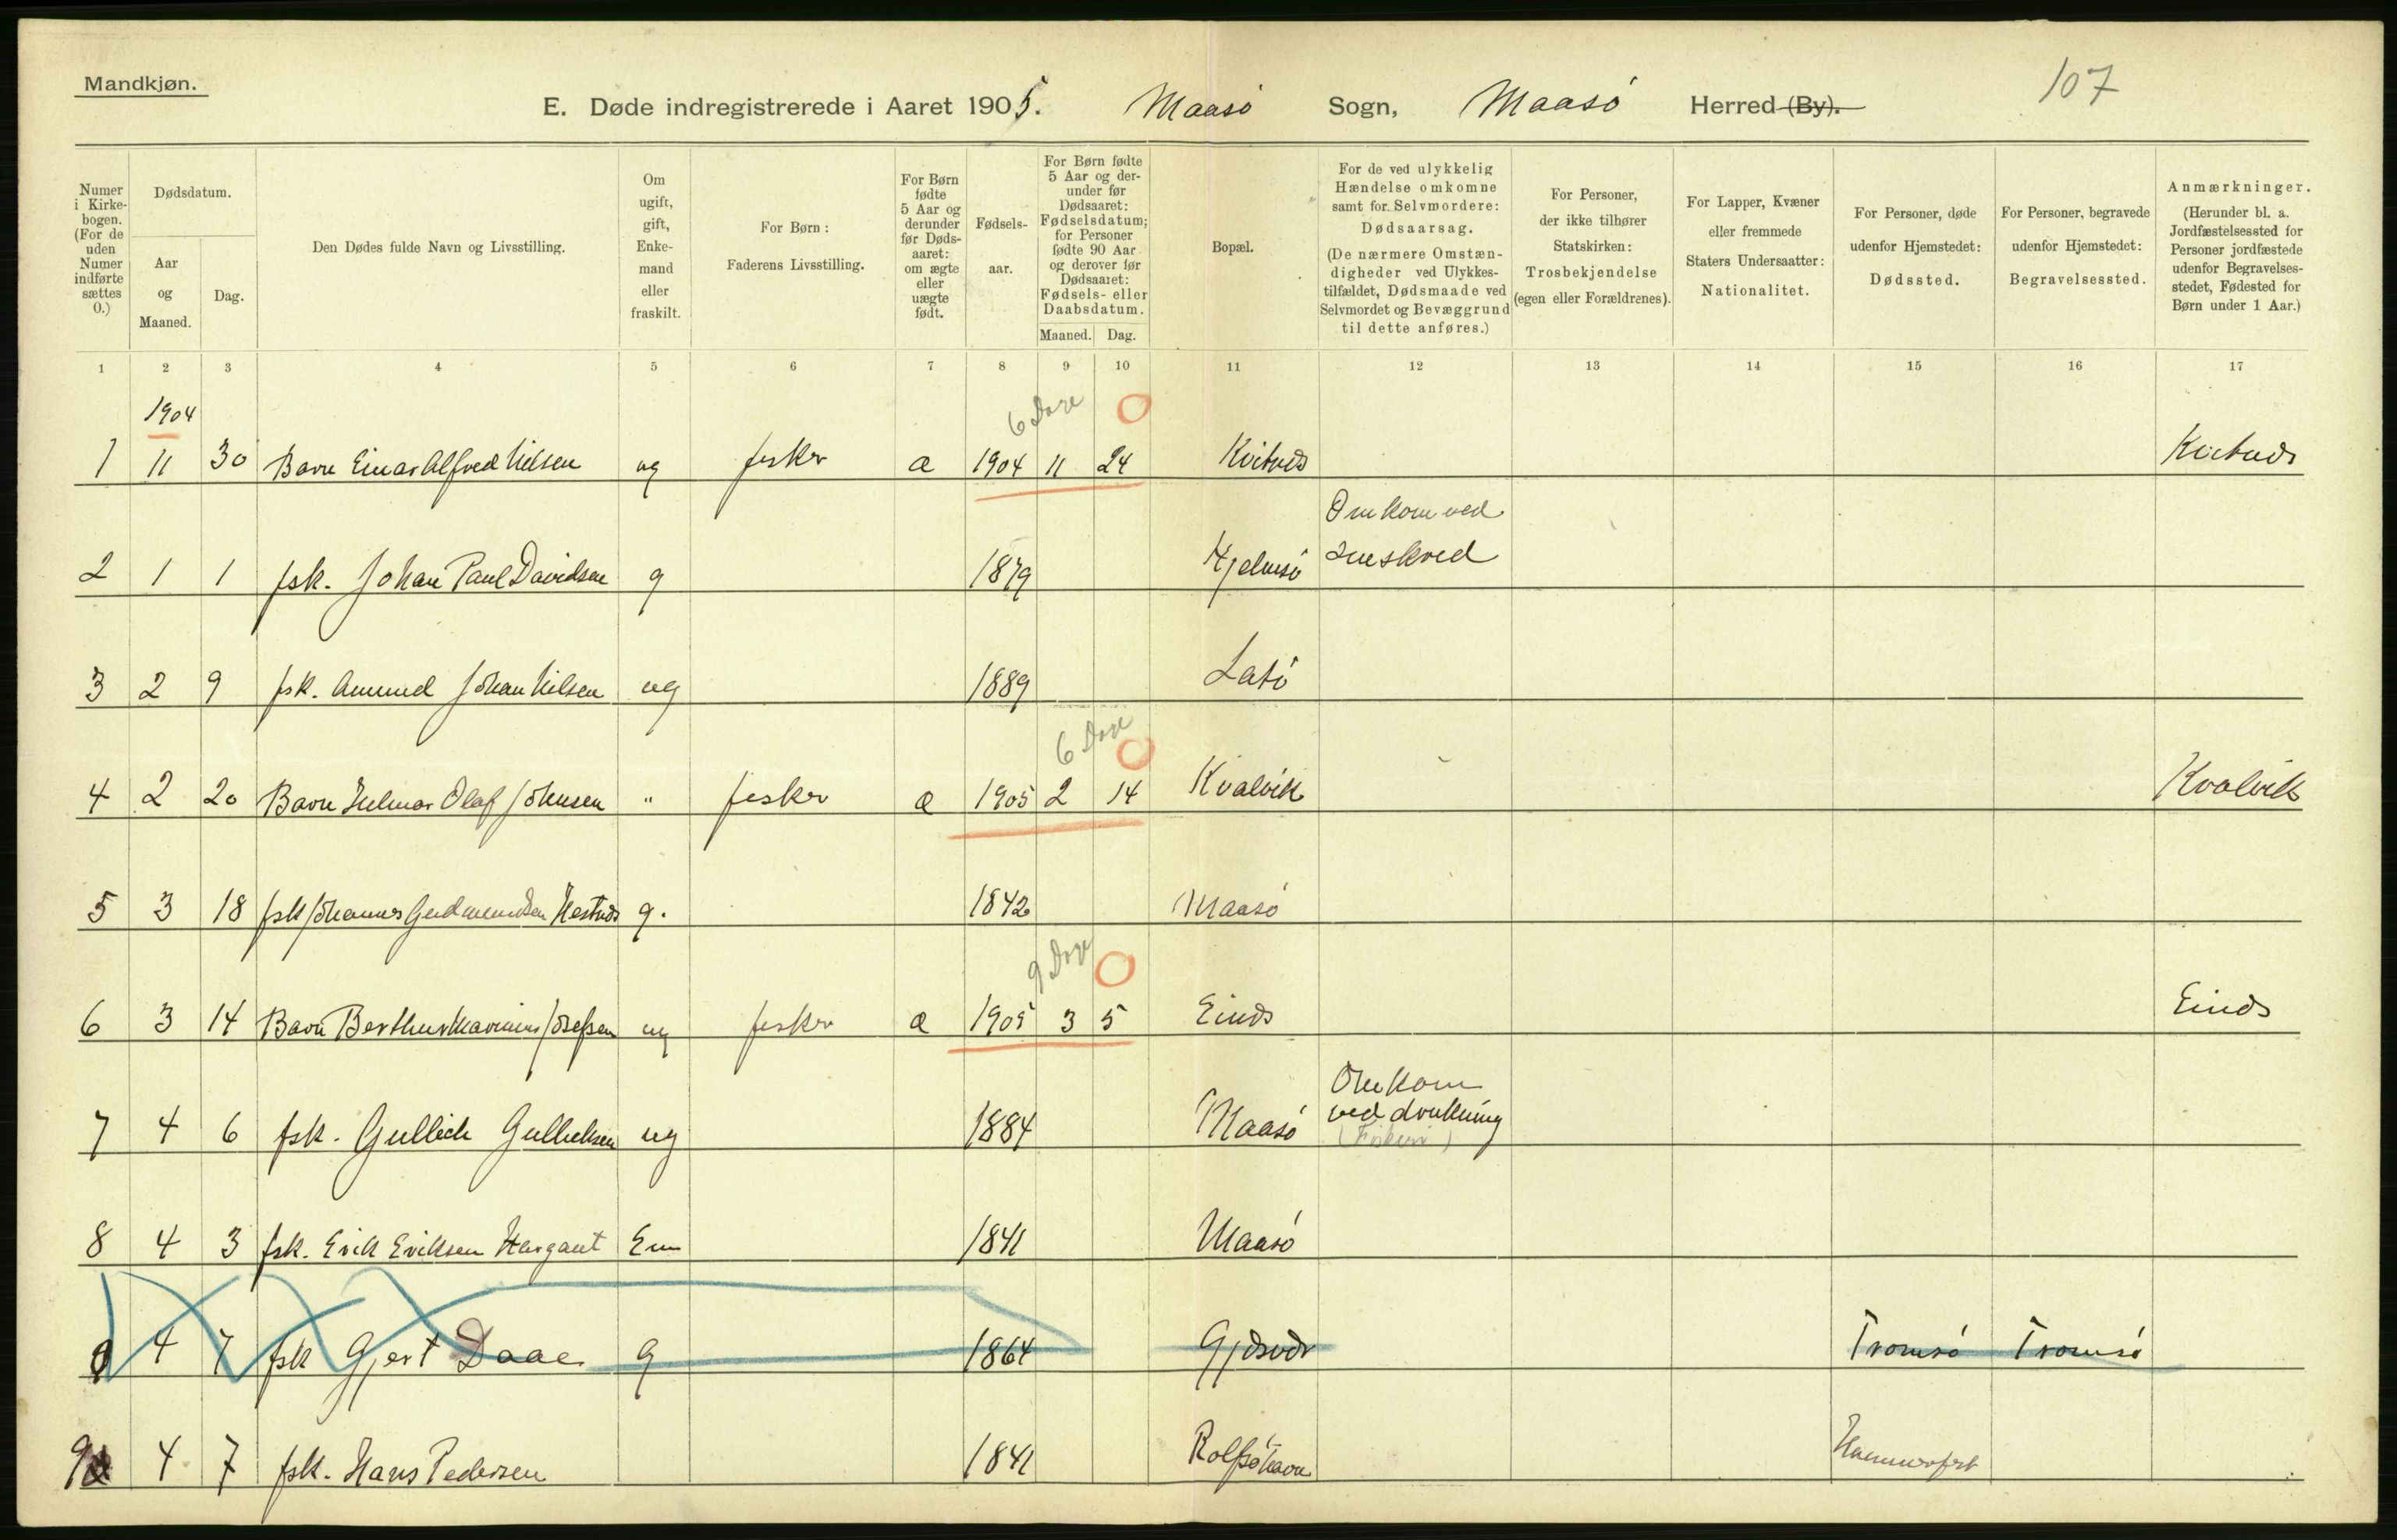 Mandkjøn.
107
E. Døde indregistrerede i Aaret 1905. Maasö Sogn, Maasö Herred (By).
Numer i Kirke-bogen. (For de uden Numer indførte sættes 0.)
Dødsdatum.
Aar og Maaned.
Dag.
Den Dødes fulde Navn og Livsstilling.
Om ugift, gift, Enke-mand eller fraskilt.
For Børn:
Faderens Livsstilling.
For Børn fødte 5 Aar og derunder før Døds-aaret: om ægte eller uægte født.
Fødsels-aar.
For Børn fødte 5 Aar og der-under før Dødsaaret: Fødselsdatum; for Personer fødte 90 Aar og derover før Dødsaaret: Fødsels- eller Daabsdatum.
Maaned. Dag.
Bopæl.
For de ved ulykkelig Hændelse omkomne samt for Selvmordere: Dødsaarsag.
(De nærmere Omstæn-digheder ved Ulykkes-tilfældet, Dødsmaade ved Selvmordet og Bevæggrund til dette anføres.)
For Personer, der ikke tilhører Statskirken: Trosbekjendelse (egen eller Forældrenes).
For Lapper, Kvæner eller fremmede Staters Undersaatter: Nationalitet.
For Personer, døde udenfor Hjemstedet: Dødssted.
For Personer, begravede udenfor Hjemstedet: Begravelsessted.
Anmærkninger.
(Herunder bl. a. Jordfæstelsessted for Personer jordfæstede udenfor Begravelses-stedet, Fødested for Børn under 1 Aar.)
1 2 3 4 5 6 7 8 9 10 11 12 13 14 15 16 17
1904
6 Dage
1 11 30 Barn Einar Alfred Nilsen ug fisker 1904 11 24
Omkom ved
sneskred
2 1 1 fsk. Johan Paul Davidsen g 1879 Hjelmsö
3 2 9 fsk. Amund Johan Nilsen ug 1889 Latö
6 Dage
4 2 20 Barn Hilmar Olaf Johnsen " fisker 1905 2 14 Kvalvik Kvalvik
5 3 18 fsk Johannes g. 1842 Maasö
9 Dage
6 3 14 Barn ug fisker 1905 3 5
Omkom
ved drukning
7 4 6 fsk. Gullich Gullichsen ug 1884 Maasö
8 4 3 fsk. Erik Eriksen Em 1841 Maasö
4 7 fsk Gjert Daae g 1864 Tromsö Tromsö
9 4 7 fsk. Hans Pedersen 1841 Rolfsöhavn Hammerfest